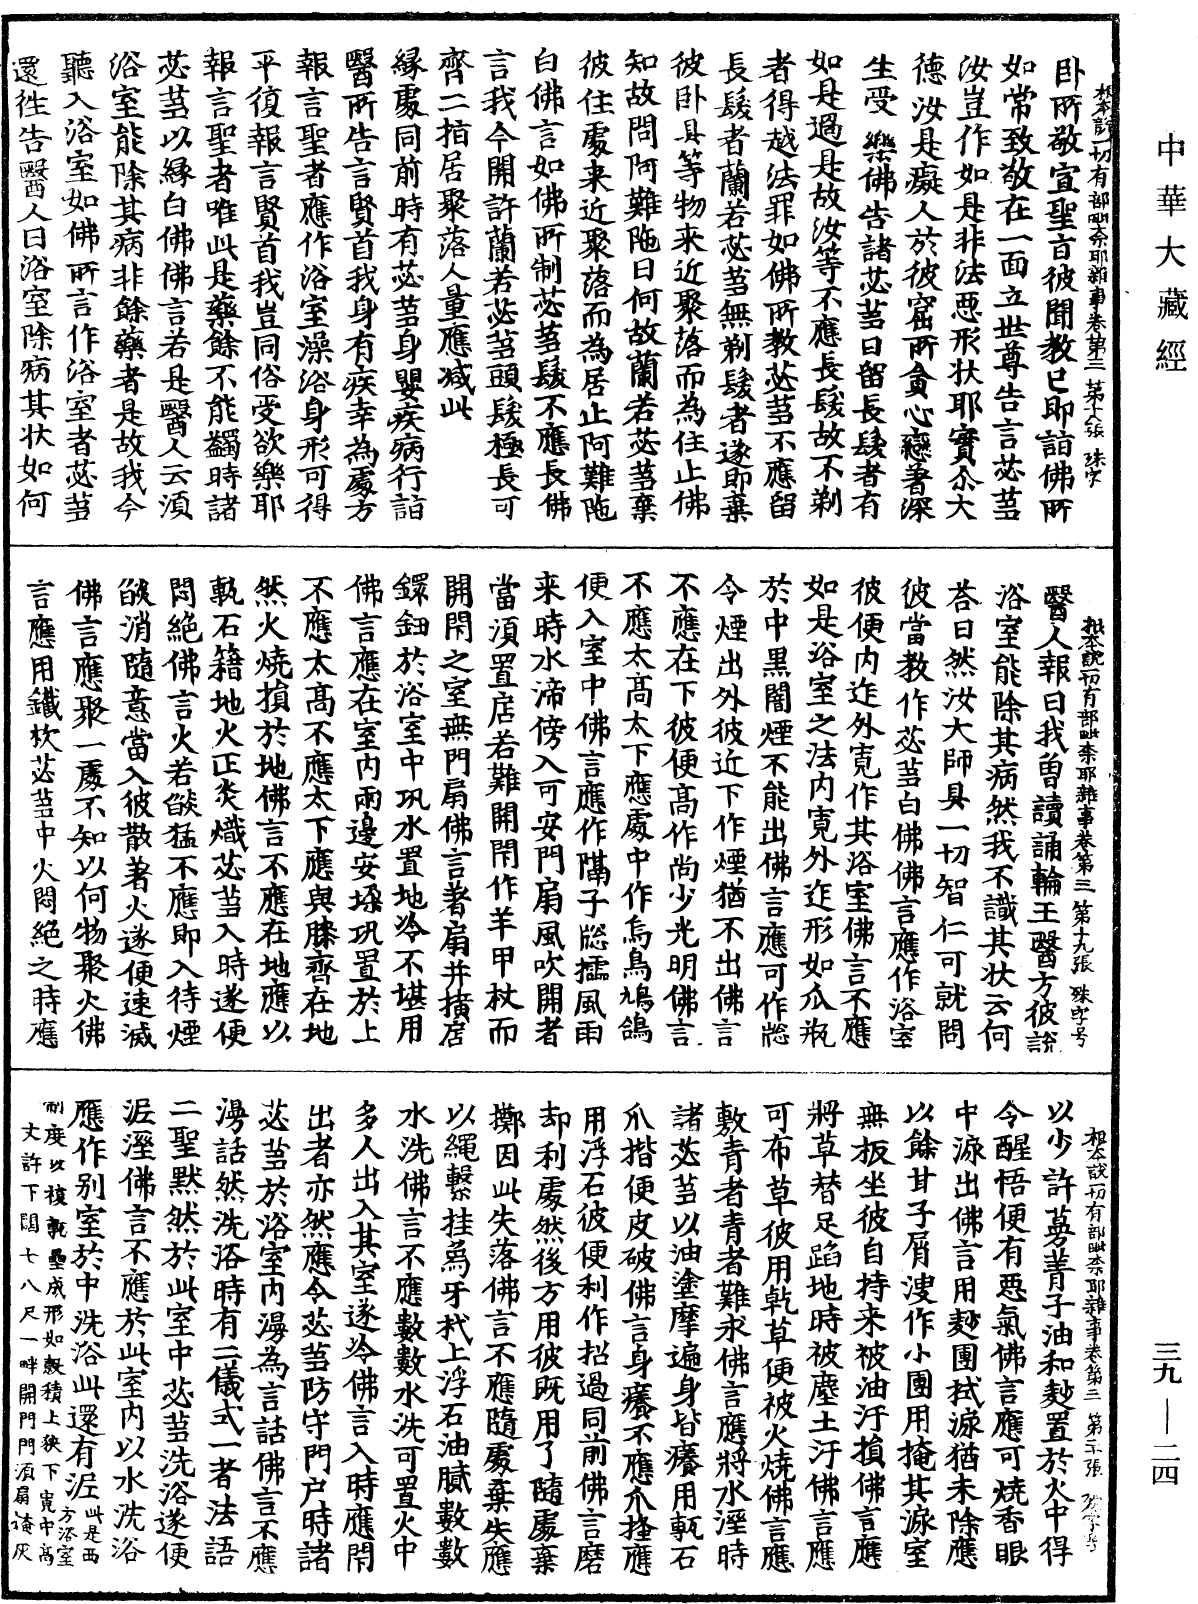 中華大藏經
三九—二四
根本說一切有部毗奈耶雜事卷第三 第十八張 殊字
臥所敬宣聖言彼聞教已即詣佛所
如常致敬在一面立世尊告言苾芻
汝豈作如是非法惡形狀耶實尒大
德汝是癡人於彼窟所貪心戀著深
生受樂佛告諸苾芻曰留長髮者有
如是過是故汝等不應長髮故不剃
者得越法罪如佛所教苾芻不應留
長髮者蘭若苾芻無剃髮者遂即棄
彼卧具等物来近聚落而為住止佛
知故問阿難陁曰何故蘭若苾芻棄
彼住處来近聚落而為居止阿難陁
白佛言如佛所制苾芻髮不應長佛
言我今開許蘭若苾芻頭髮極長可
齊二指居聚落人量應減此
緣處同前時有苾芻身嬰疾病行詣
醫所告言賢首我身有疾幸為處方
報言聖者應作浴室澡浴身形可得
平復報言賢首我豈同俗受欲樂耶
報言聖者唯此是藥餘不能蠲時諸
苾芻以緣白佛佛言若是醫人云須
浴室能除其病非餘藥者是故我今
聽入浴室如佛所言作浴室者苾芻
還往告醫人曰浴室除病其狀如何
根本說一切有部毗奈耶雜事卷第三 第十九張 殊字号
醫人報曰我曾讀誦輪王醫方彼說
浴室能除其病然我不識其狀云何
荅曰然汝大師具一切智仁可就問
彼當教作苾芻白佛佛言應作浴室
彼便內迮外寬作其浴室佛言不應
如是浴室之法內寬外迮形如瓜瓶
於中黑闇煙不能出佛言應可作牎
令煙出外彼近下作煙猶不出佛言
不應在下彼便高作尚少光明佛言
不應太高太下應處中作烏鳥鳩鴿
便入室中佛言應作隔子牎擩風雨
来時水渧傍入可安門扇風吹開者
當須置店若難開閇作羊甲杖而
開閇之室無門扇佛言著扇并擴店
鐶鈕於浴室中㼦水置地冷不堪用
佛言應在室內兩邊安𡍼㼦置於上
不應太高不應太下應與膝齊在地
然火燒損於地佛言不應在地應以
甎石籍地火正炎熾苾芻入時遂便
悶絕佛言火若𦦨猛不應即入待煙
𦦨消隨意當入彼散著火遂便速滅
佛言應聚一處不知以何物聚火佛
言應用鐵杴苾芻中火悶絕之時應
根本說一切有部毗奈耶雜事卷第三 第二十張 殊字号
以少許蔓菁子油和麨置於火中得
令醒悟便有惡氣佛言應可燒香眼
中淚出佛言用麨團拭淚猶未除應
以餘甘子屑溲作小團用掩其淚室
無板坐彼自持来被油汙損佛言應
將草替足蹈地時被塵土汙佛言應
可布草彼用乾草便被火燒佛言應
敷青者青者難求佛言應將水溼時
諸苾芻以油塗摩遍身皆癢用甎石
爪揩便皮破佛言身癢不應爪搔應
用浮石彼便利作招過同前佛言磨
却利處然後方用彼既用了隨處棄
擲因此失落佛言不應隨處棄失應
以繩繫挂為牙杙上浮石油膩數數
水洗佛言不應數數水洗可置火中
多人出入其室遂冷佛言入時應閇
出者亦然應令苾芻防守門戶時諸
苾芻於浴室內漫為言話佛言不應
漫話然洗浴時有二儀式一者法語
二聖默然於此室中苾芻洗浴遂便
泥溼佛言不應於此室內以水洗浴
應作別室於中洗浴此還有泥此是西方浴室
制度以複甎壘成形如穀積上狹下寬中高
丈許下闊七八尺一畔開門門須扇掩灰